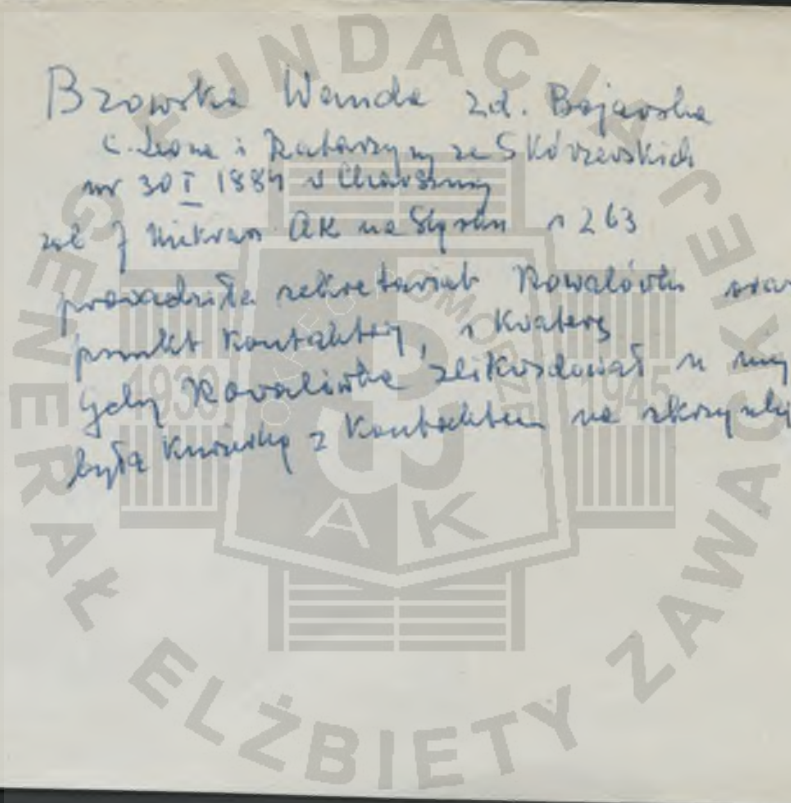 Bzowska Wanda zd. Bojarska
c. Leona i Katarzyny ze Skórzewskich
ur 30 I 1884 w Charsznicy
zał. 7 AK na Śląsku s 263
prowadziła sekretariat Kowalówki oraz
punkt kontaktowy, i kwaterę
gdy Kowalówka zlikwidował u niej
była z kontaktem na skrzynkę
FUNDACJA GENERAŁ ELŻBIETY ZAWACKIEJ
OKRĘG POMORZE
1939 1945
AK